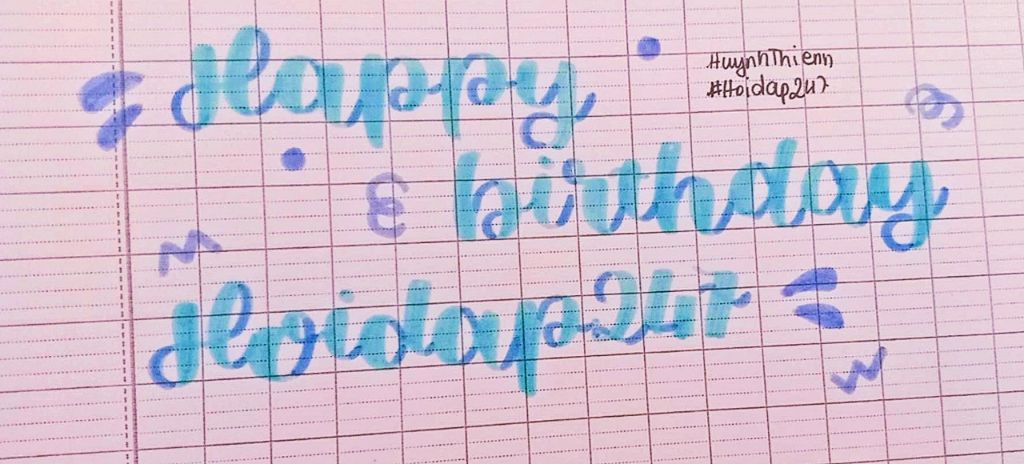 Happy
HuynhThienn
#Hoidap247
birthday
Hoidap247